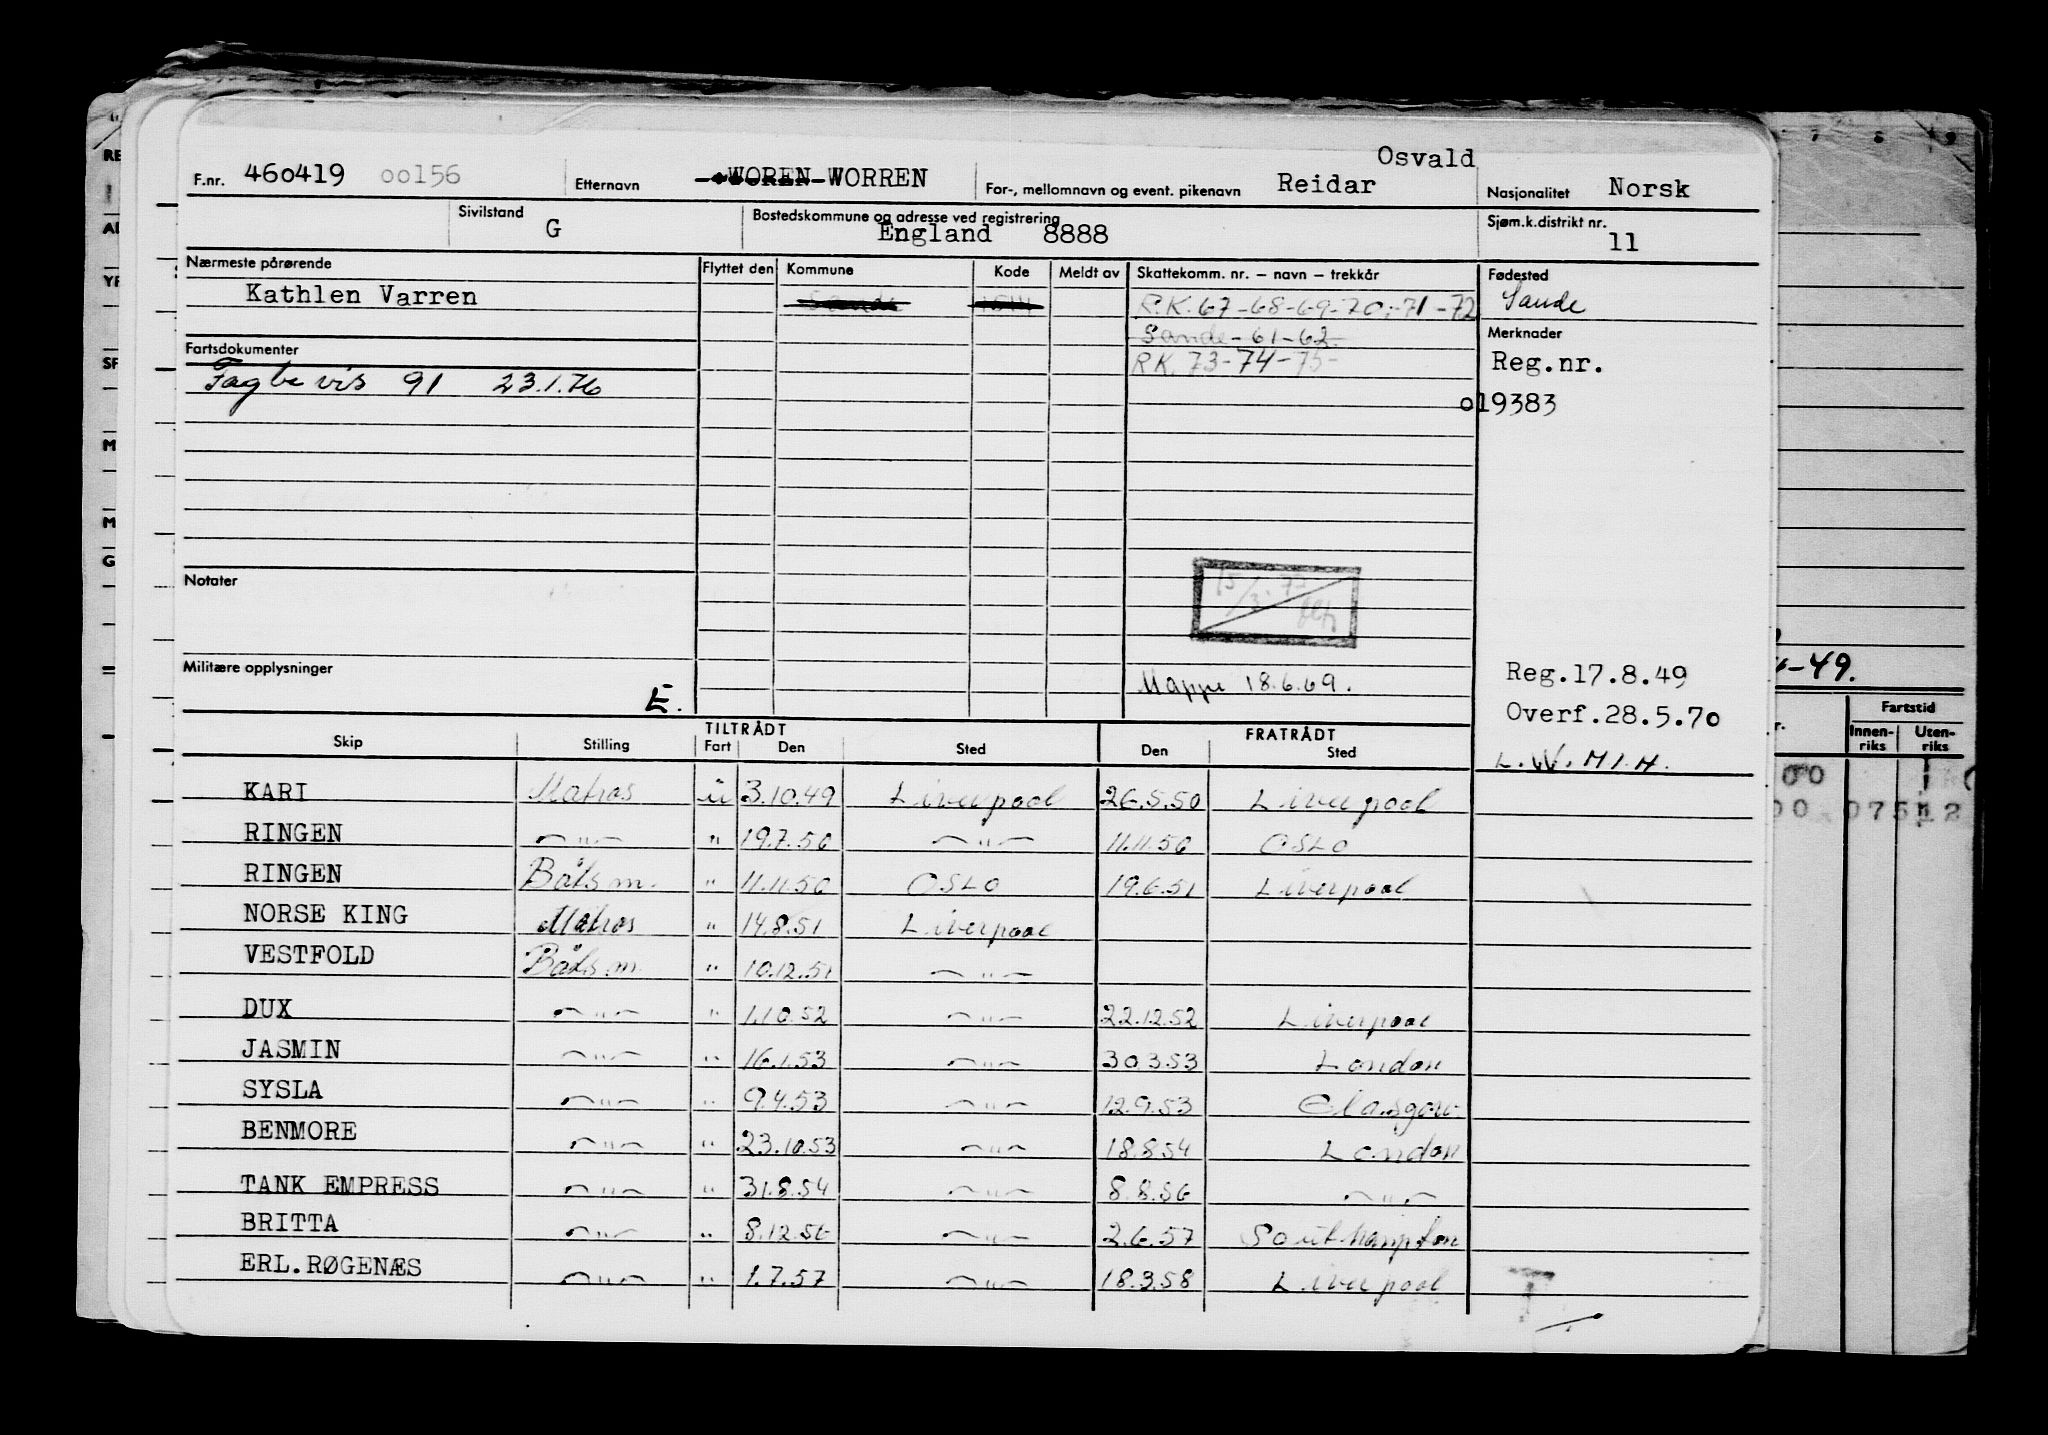 Osvald
F.nr. 460419 00156 Etternavn WOREN WORREN For-, mellomnavn og event. pikenavn Reidar Nasjonalitet Norsk
Sivilstand G Bostedskommune og adresse ved registrering England 8888 Sjøm.k.distrikt nr. 11
Nærmeste pårørende Flyttet den Kommune Kode Meldt av Skattekomm. nr. – navn – trekkår Fødested
Kathlen Varren Sande R.K. 67-68-69-70-71-72 Sande
Sande-61-62 Merknader
Fartsdokumenter RK. 73-74-75- Reg.nr.
Fagbevis 91 23.1.76 019383
Notater
Militære opplysninger Mappe 18.6.69. Reg.17.8.49
E. Overf.28.5.70
TILTRÅDT FRATRÅDT
Skip Stilling Fart Den Sted Den Sted
L.W. M.I.H.
KARI Matros u 3.10.49 Liverpool 26.5.50 Liverpool
RINGEN —"— " 19.7.50 —"— 11.11.50 OSLO
RINGEN Båtsm. " 11.11.50 OSLO 19.6.51 Liverpool
NORSE KING Matros " 14.8.51 Liverpool
VESTFOLD Båtsm. " 10.12.51 —"—
DUX —"— " 1.10.52 —"— 22.12.52 Liverpool
JASMIN —"— " 16.1.53 —"— 30.3.53 London
SYSLA —"— " 9.4.53 —"— 12.9.53 Glasgow
BENMORE —"— " 23.10.53 —"— 18.8.54 London
TANK EMPRESS —"— " 31.8.54 —"— 8.8.56 —"—
BRITTA —"— " 8.12.56 —"— 2.6.57 Southampton
ERL.RØGENÆS —"— " 1.7.57 —"— 18.3.58 Liverpool
7 8 9
-49.
Fartstid
Innen-riks Uten-riks